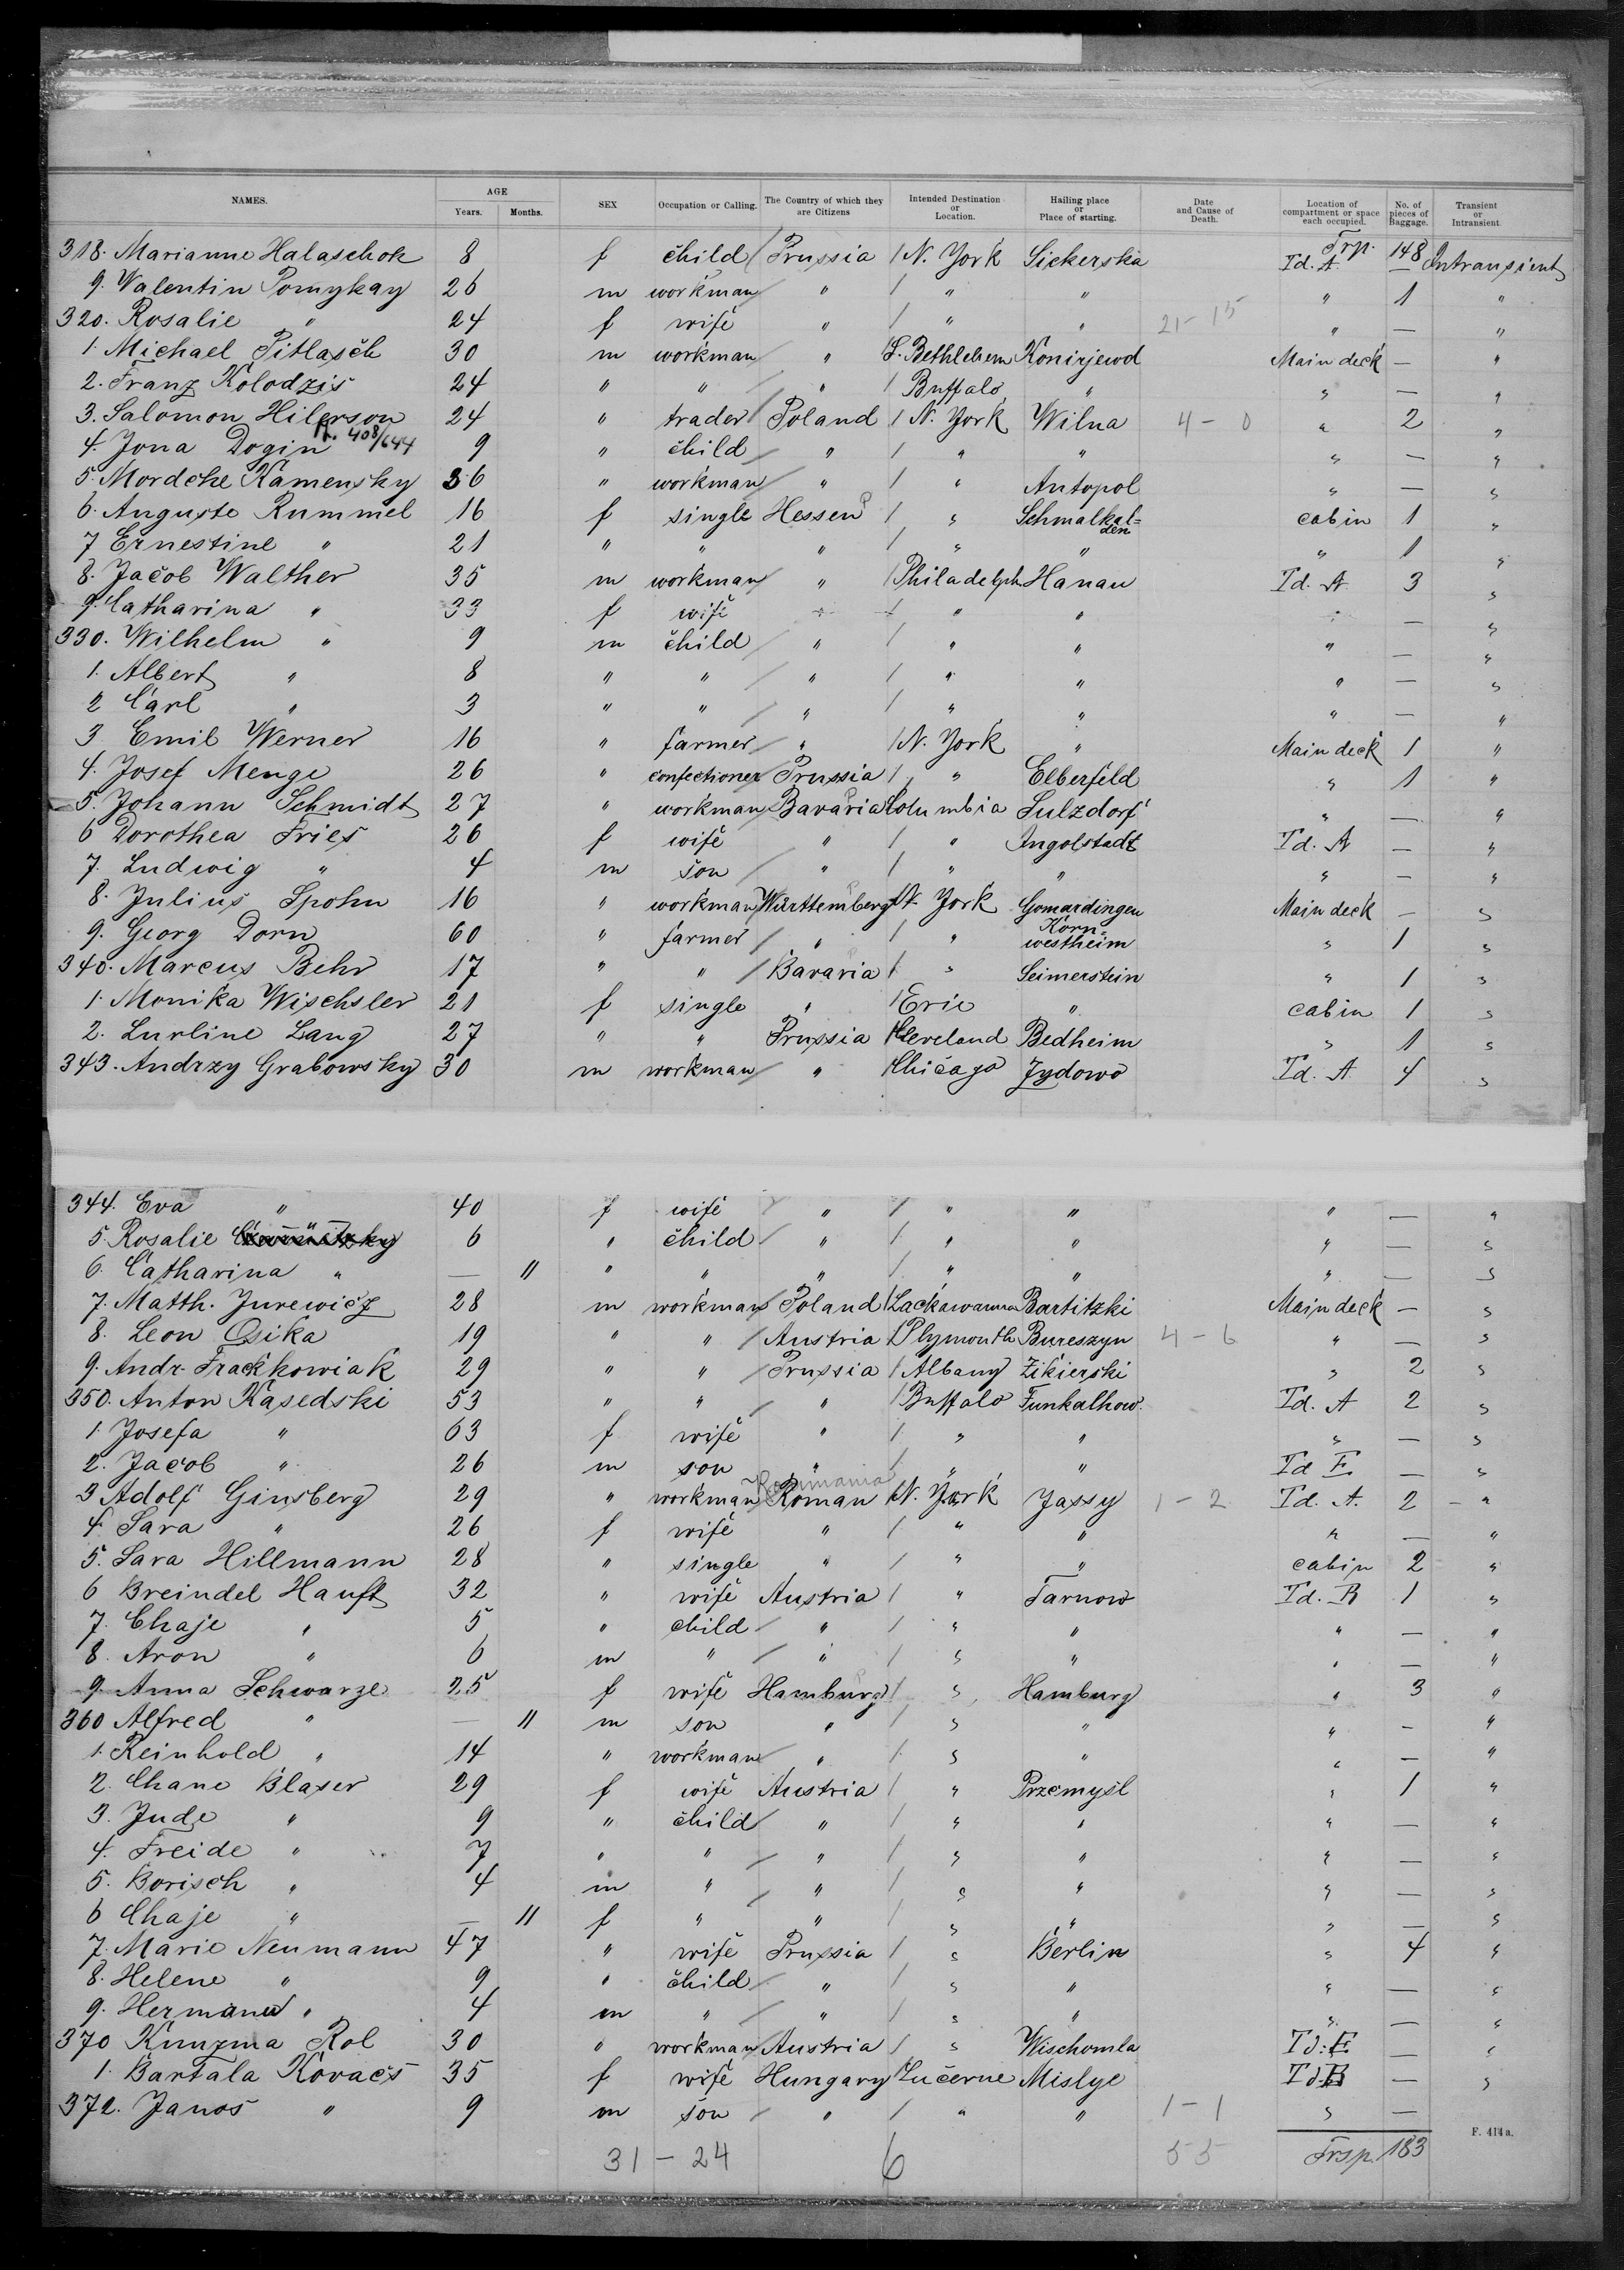 NAMES. AGE Years. Months. SEX Occupation or Calling. The Country of which they are Citizens Intended Destination or Location. Hailing place or Place of starting. Date and Cause of Death. Location of compartment or space each occupied. No. of pieces of Baggage. Transient or Intransient.
Trp. 148
318. Marianne Halaschok 8 f child / Prussia / N. York Siekerska Td. A — Intransient
9. Valentin Pomykay 26 m workman / " / " " " 1 "
320. Rosalie " 24 f wife " / " " 21-15 " — "
1. Michael Pitlasch 30 m workman " / S. Bethlehem Konirjewo Main deck — "
2. Franz Kolodzis 24 " " / " / Buffalo " " — "
3. Salomon Hilerson 24 " trader / Poland / N. York Wilna 4-0 " 2 "
4. Jona Dogin 408/644 9 " child / " / " " " — "
5. Mordche Kamensky 36 " workman / " / " Antopol " — "
6. Auguste Rummel 16 f single Hessen / " Schmalkal=den cabin 1 "
7 Ernestine " 21 " " " / " " " 1 "
8. Jacob Walther 35 m workman / " / Philadelph. Hanau Td. A. 3 "
9. Catharina " 33 f wife " / " " " — "
330. Wilhelm " 9 m child / " / " " " — "
1. Albert " 8 " " / " / " " " — "
2 Carl " 3 " " / " / " " " — "
3 Emil Werner 16 " farmer / " / N. York " Main deck 1 "
4. Josef Menge 26 " confectioner Prussia / " Elberfeld " 1 "
5. Johann Schmidt 27 " workman Bavaria Columbia Sulzdorf " — "
6 Dorothea Fries 26 f wife " / " Ingolstadt Td. A — "
7. Ludwig " 4 m son / " / " " " — "
8. Julius Spohn 16 " workman Württemberg N. York Gomardingen Main deck — "
9. Georg Dorn 60 " farmer / " / " Korn=westheim " 1 "
340. Marcus Behr 17 " " / Bavaria / " Leimerstein " 1 "
1. Monika Wischsler 21 f single " / Erie " cabin 1 "
2. Lurline Lang 27 " " Prussia Cleveland Bedheim " 1 "
343. Andrzy Grabowsky 30 m workman / " Chicago Zydowo Td. A 4 "
344. Eva " 40 f wife / " / " " " — "
5. Rosalie 6 " child / " / " " " — "
6. Catharina " — 11 " " " / " " " — "
7. Matth. Jurewicz 28 m workman Poland / Lackawanna Bartitzki Main deck — "
8. Leon Osika 19 " " / Austria / Plymouth Bureszyn 4-6 " — "
9. Andr. Frackkowiak 29 " " / Prussia / Albany Zikierski " 2 "
350. Anton Kasedski 53 " " " / Buffalo Funkalhow. Td. A 2 "
1. Josefa " 63 f wife " / " " " — "
2. Jacob " 26 m son " / " " Td E. — "
Roumania
3 Adolf Ginsberg 29 " workman Roman / N. York Jassy 1-2 Td. A. 2 "
4. Sara " 26 f wife " / " " " — "
5. Sara Hillmann 28 " single " / " " cabin 2 "
6 Breindel Hauft 32 " wife Austria / " Tarnow Td. B 1 "
7. Chaje " 5 " child / " / " " " — "
8. Aron " 6 m " / " / " " " — "
9. Anna Schwarze 25 f wife Hamburg / " Hamburg " 3 "
360 Alfred " — 11 m son " / " " " — "
1. Reinhold " 14 " workman " / " " " — "
2. Chane Blaser 29 f wife Austria / " Przemysl " 1 "
3. Jude " 9 " child / " / " " " — "
4. Freide " 7 " " / " / " " " — "
5. Borisch " 4 m " / " / " " " — "
6 Chaje " — 11 f " " / " " " — "
7. Marie Neumann 47 " wife Prussia / " Berlin " 4 "
8. Helene " 9 " child / " / " " " — "
9. Hermann " 4 m " / " / " " " — "
370 Kunzma Rol 30 " workman Austria / " Wischomla Td. E — "
1. Bartala Kovacs 35 f wife Hungary Lucerne Mislye Td. B — "
372. Janos " 9 m son / " / " " 1-1 " —
F. 414a.
31-24 6 55 Trsp. 183